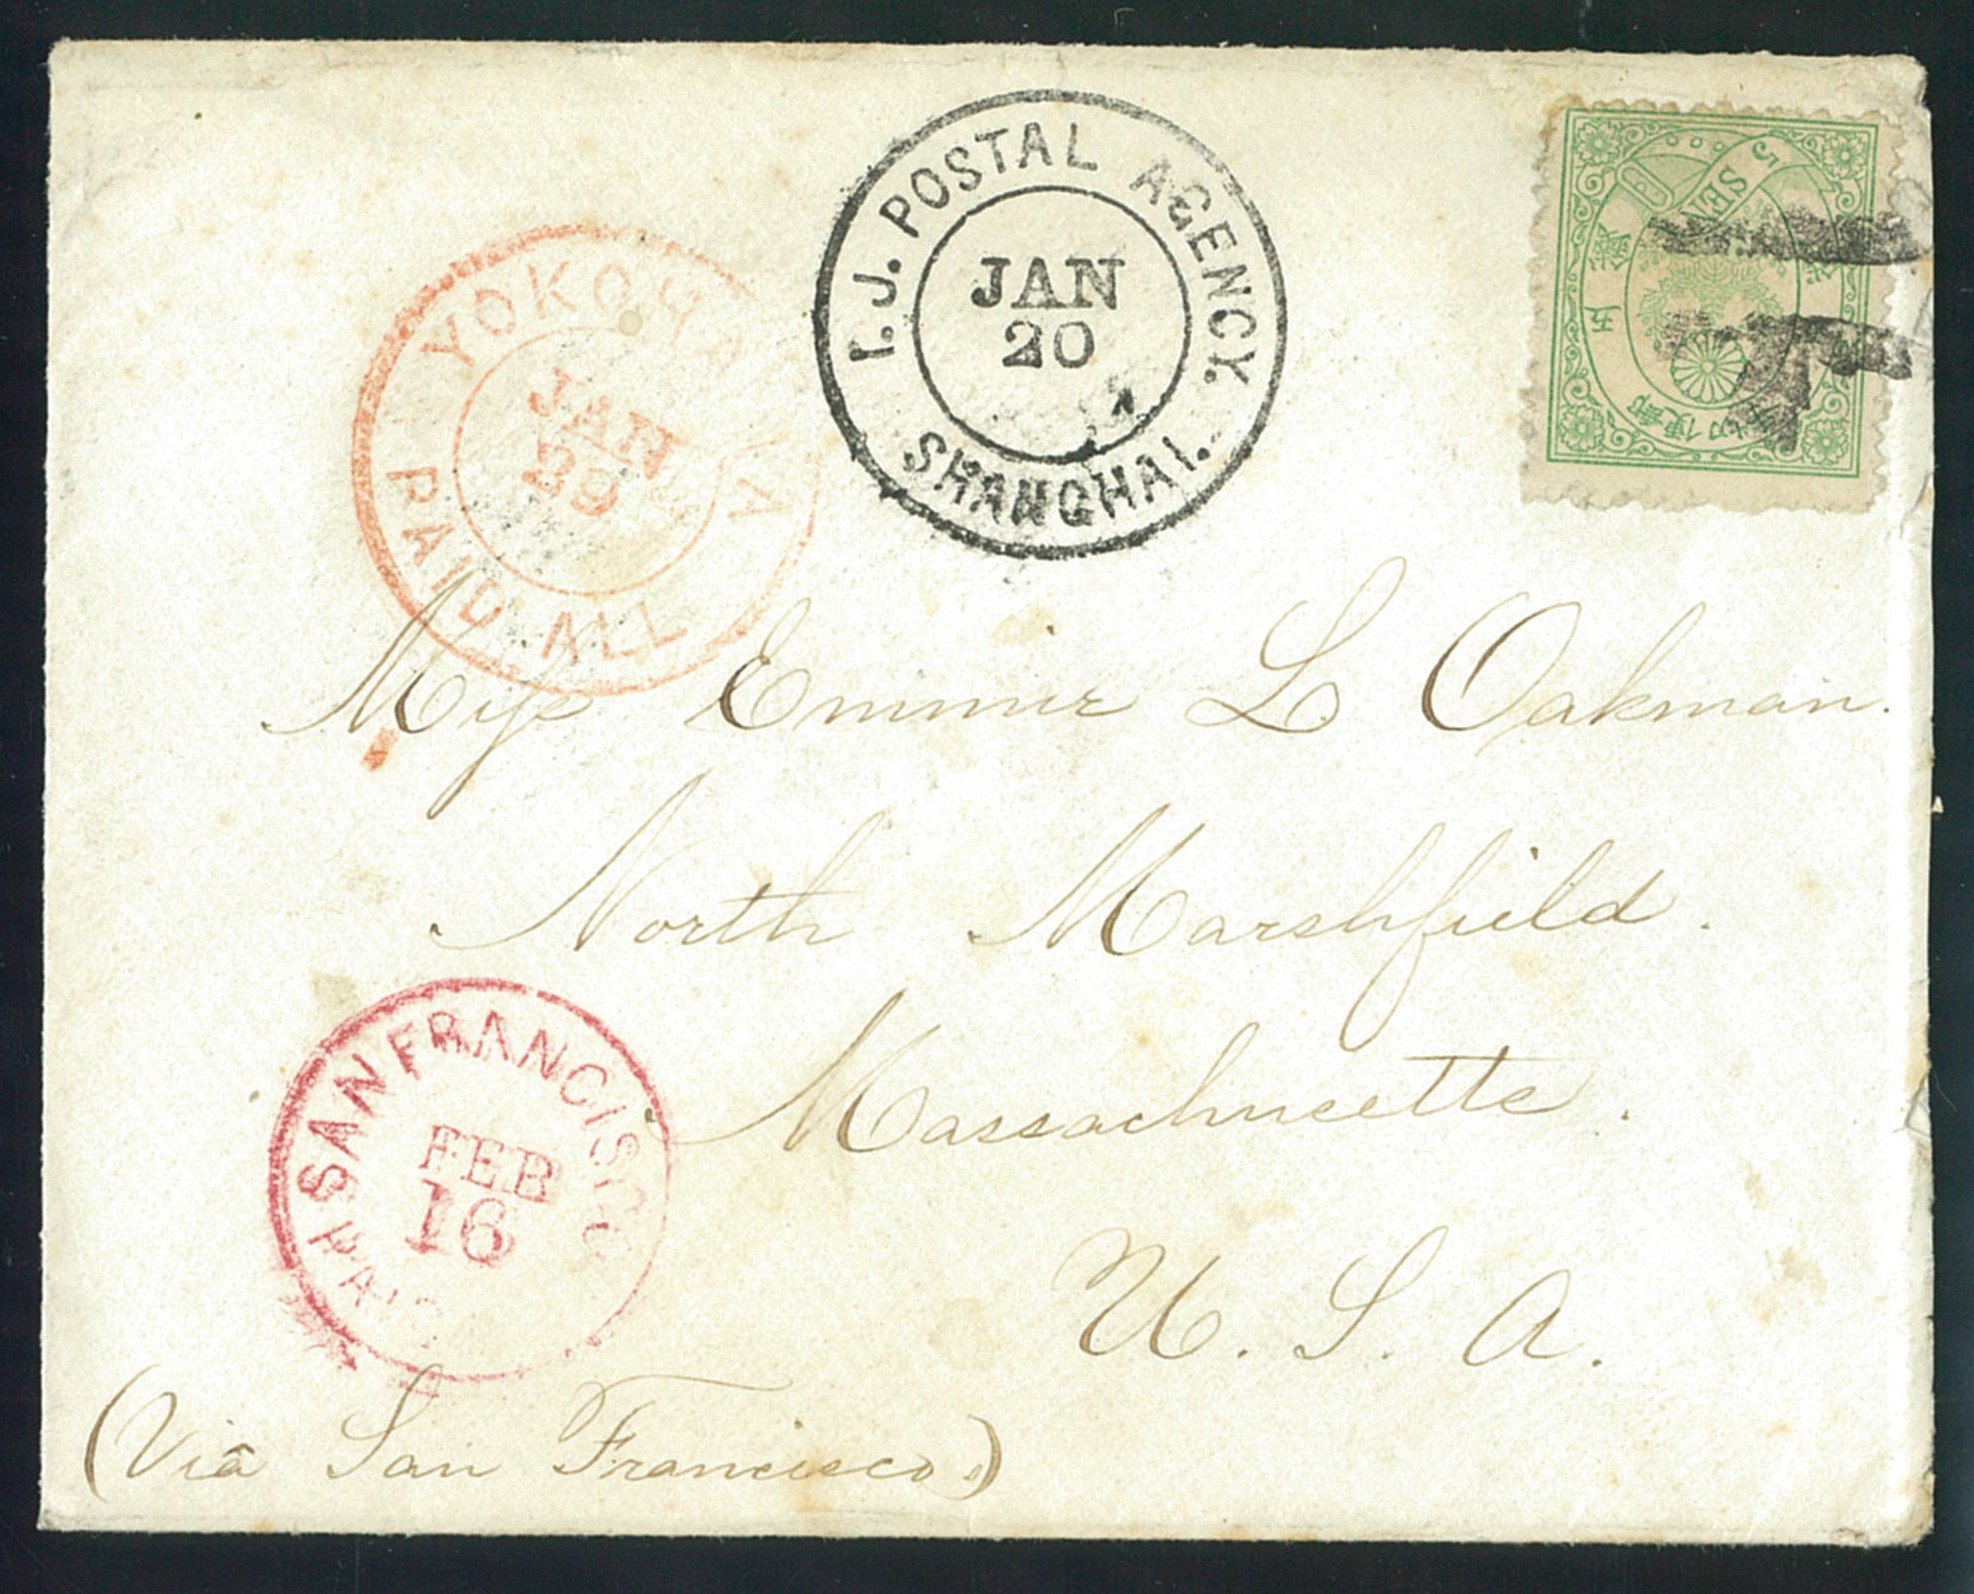 I.J. POSTAL AGENCY.
JAN
20
SHANGHAI.
YOKOHAMA
JAN
29
PAID ALL
5 SEN
五
Miss Emmie L Oakman.
North Marshfield.
Massachusetts.
U. S. A.
SAN FRANCISCO
FEB
16
PAID
(Via San Francisco.)